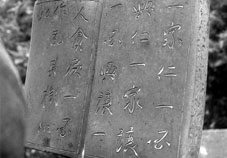 一家仁一國
興仁一家讓
一國興讓一
人貪戾一國
作亂其機